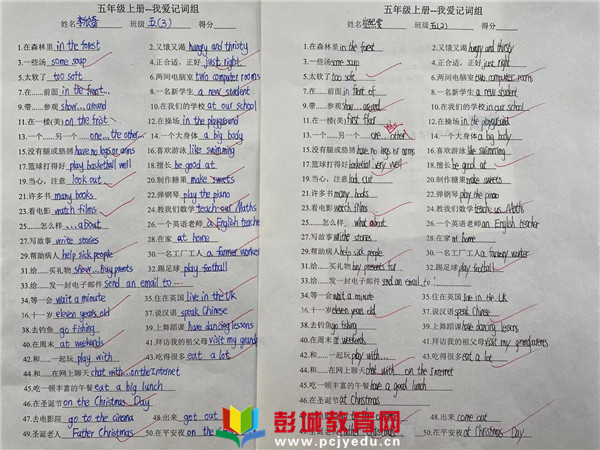 五年级上册--我爱记词组
姓名 班级 五(3) 得分
1.在森林里 in the forest 2.又饿又渴 hungry and thristy
3.一些汤 some soup 4.正合适，正好 just right
5.太软了 too soft 6.两间电脑室 two computer rooms
7.在……前面 in the front... 8.一名新学生 a new student
9.带…参观 show...around 10.在我们的学校 at our school
11.在一楼(美) on the frist 12.在操场 in the playground
13.一个…另一个… one...the other... 14.一个大身体 a big body
15.没有腿或胳膊 have no legs or arms 16.喜欢游泳 like swimming
17.篮球打得好 play basketball well 18.擅长 be good at
19.当心，注意 look out 20.制作糖果 make sweets
21.许多书 many books 22.弹钢琴 play the piano
23.看电影 watch films 24.教我们数学 teach our Maths
25.……怎么样 ...about 26.一个英语老师 a English teacher
27.写故事 write stories 28.在家 at home
29.帮助病人 help sick people 30.一名工厂工人 a farmer worker
31.给…买礼物 show...buy parents 32.踢足球 play football
33.给……发一封电子邮件 send an email to...
34.等一会 wait a minute 35.住在英国 live in the UK
36.十一岁 eleven years old 37.说汉语 speak Chinese
38.去钓鱼 go fishing 39.上舞蹈课 have dancing lessons
40.在周末 at weekends 41.拜访我的祖父母 visit my grand
42.和……一起玩 play with 43.吃得很多 eat a lot
44.和……在网上聊天 chat with...on the Internet
45.吃一顿丰富的午餐 eat a big lunch
46.在圣诞节 on the Christmas Day
47.去电影院 go to the cinema 48.出来 get out
49.圣诞老人 Father Christmas 50.在平安夜 on the
五年级上册--我爱记词组
姓名 班级 五(2) 得分
1.在森林里 in the forest 2.又饿又渴 hungry and thirsty
3.一些汤 some soup 4.正合适，正好 just right
5.太软了 too soft 6.两间电脑室 two computer rooms
7.在……前面 in front of 8.一名新学生 a new student
9.带…参观 show...around 10.在我们的学校 in our school
11.在一楼(美) first floor 12.在操场 in the playground
13.一个…另一个… one... other... 14.一个大身体 a big body
15.没有腿或胳膊 have no legs or arms 16.喜欢游泳 like swimming
17.篮球打得好 basketball very well 18.擅长 be good at
19.当心，注意 look out 20.制作糖果 make sweets
21.许多书 many books 22.弹钢琴 play the piano
23.看电影 watch films 24.教我们数学 teach us Maths
25.……怎么样 what about 26.一个英语老师 an English teacher
27.写故事 write stories 28.在家 at home
29.帮助病人 help sick people 30.一名工厂工人 a farmer worker
31.给…买礼物 buy presents for... 32.踢足球 play football
33.给……发一封电子邮件 send an email to...
34.等一会 wait a minute 35.住在英国 live in the UK
36.十一岁 eleven years old 37.说汉语 speak Chinese
38.去钓鱼 go fishing 39.上舞蹈课 have dancing lessons
40.在周末 at weekends 41.拜访我的祖父母 visit my grandparents
42.和……一起玩 play with... 43.吃得很多 eat a lot
44.和……在网上聊天 chat with on the Internet
45.吃一顿丰富的午餐 have a good lunch
46.在圣诞节 at Christmas
48.出来 come out
Christmas 50.在平安夜 at Christmas Day
彭城教育网
www.pcjyedu.cn